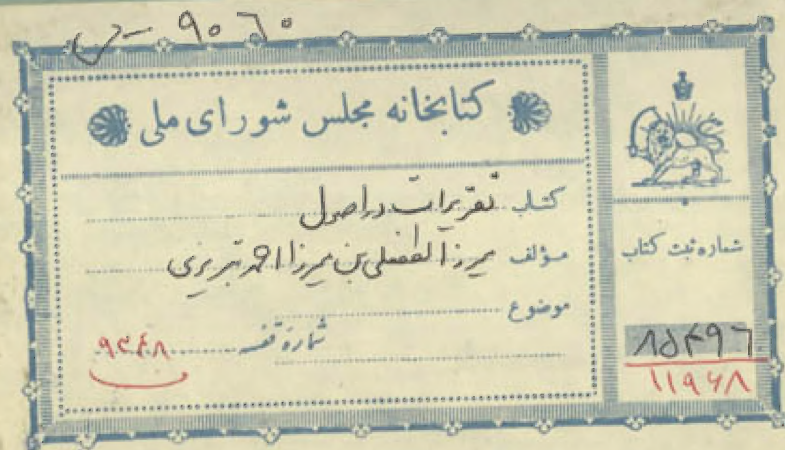 ۹۰۶۰
کتابخانه مجلس شورای ملی
کتاب تقریرات در اصول
مؤلف میرزا لطفعلی بن میرزا احمد تبریزی
موضوع
شماره قفسه ۹۳۴۸
شماره ثبت کتاب
۸۵۴۹۶
۱۱۹۶۸